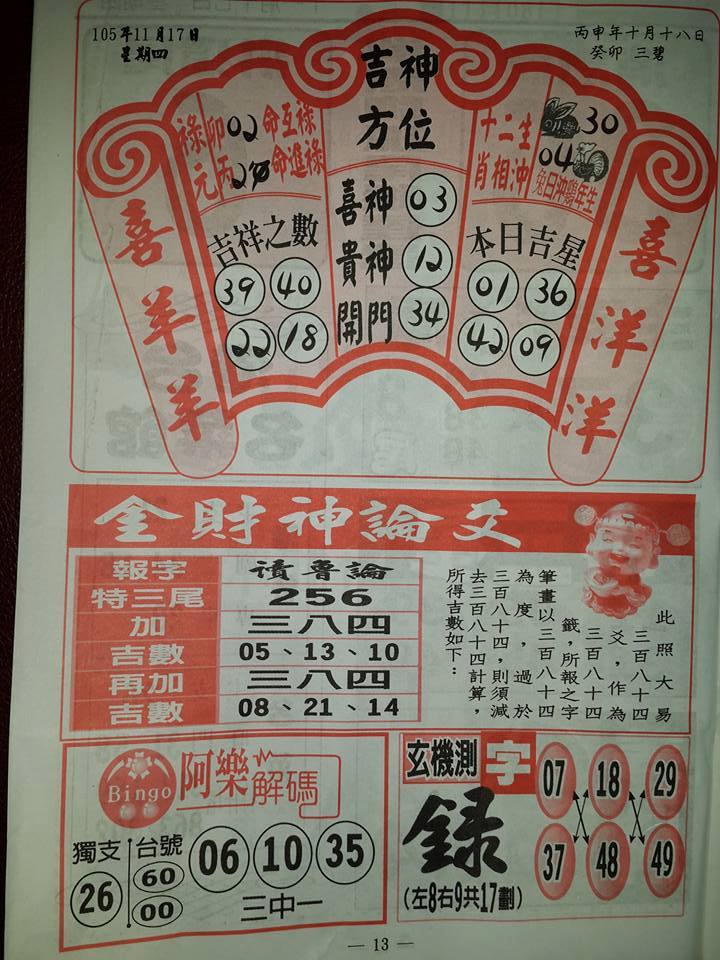 105年11月17日
星期四
丙申年十月十八日
癸卯 三碧
吉神
方位
祿卯02命互祿
元丙 命進祿
十二生 30
肖相沖 04
兔日沖雞年生
喜神 03
貴神 12
開門 34
吉祥之數
39 40
22 18
本日吉星
01 36
42 09
喜羊羊
喜洋洋
金財神論爻
報字 讀魯論
特三尾 256
加 三八四
吉數 05、13、10
再加 三八四
吉數 08、21、14
此照大易
三百八十四
爻，作為
三百八十四
籤，所報之字
筆畫以三百八十四
為度，過於
三百八十四，則須減
去三百八十四計算，
所得吉數如下：
Bingo 阿樂解碼
獨支 26
台號 60 00
06 10 35
三中一
玄機測字
録
(左8右9共17劃)
07 18 29
37 48 49
— 13 —